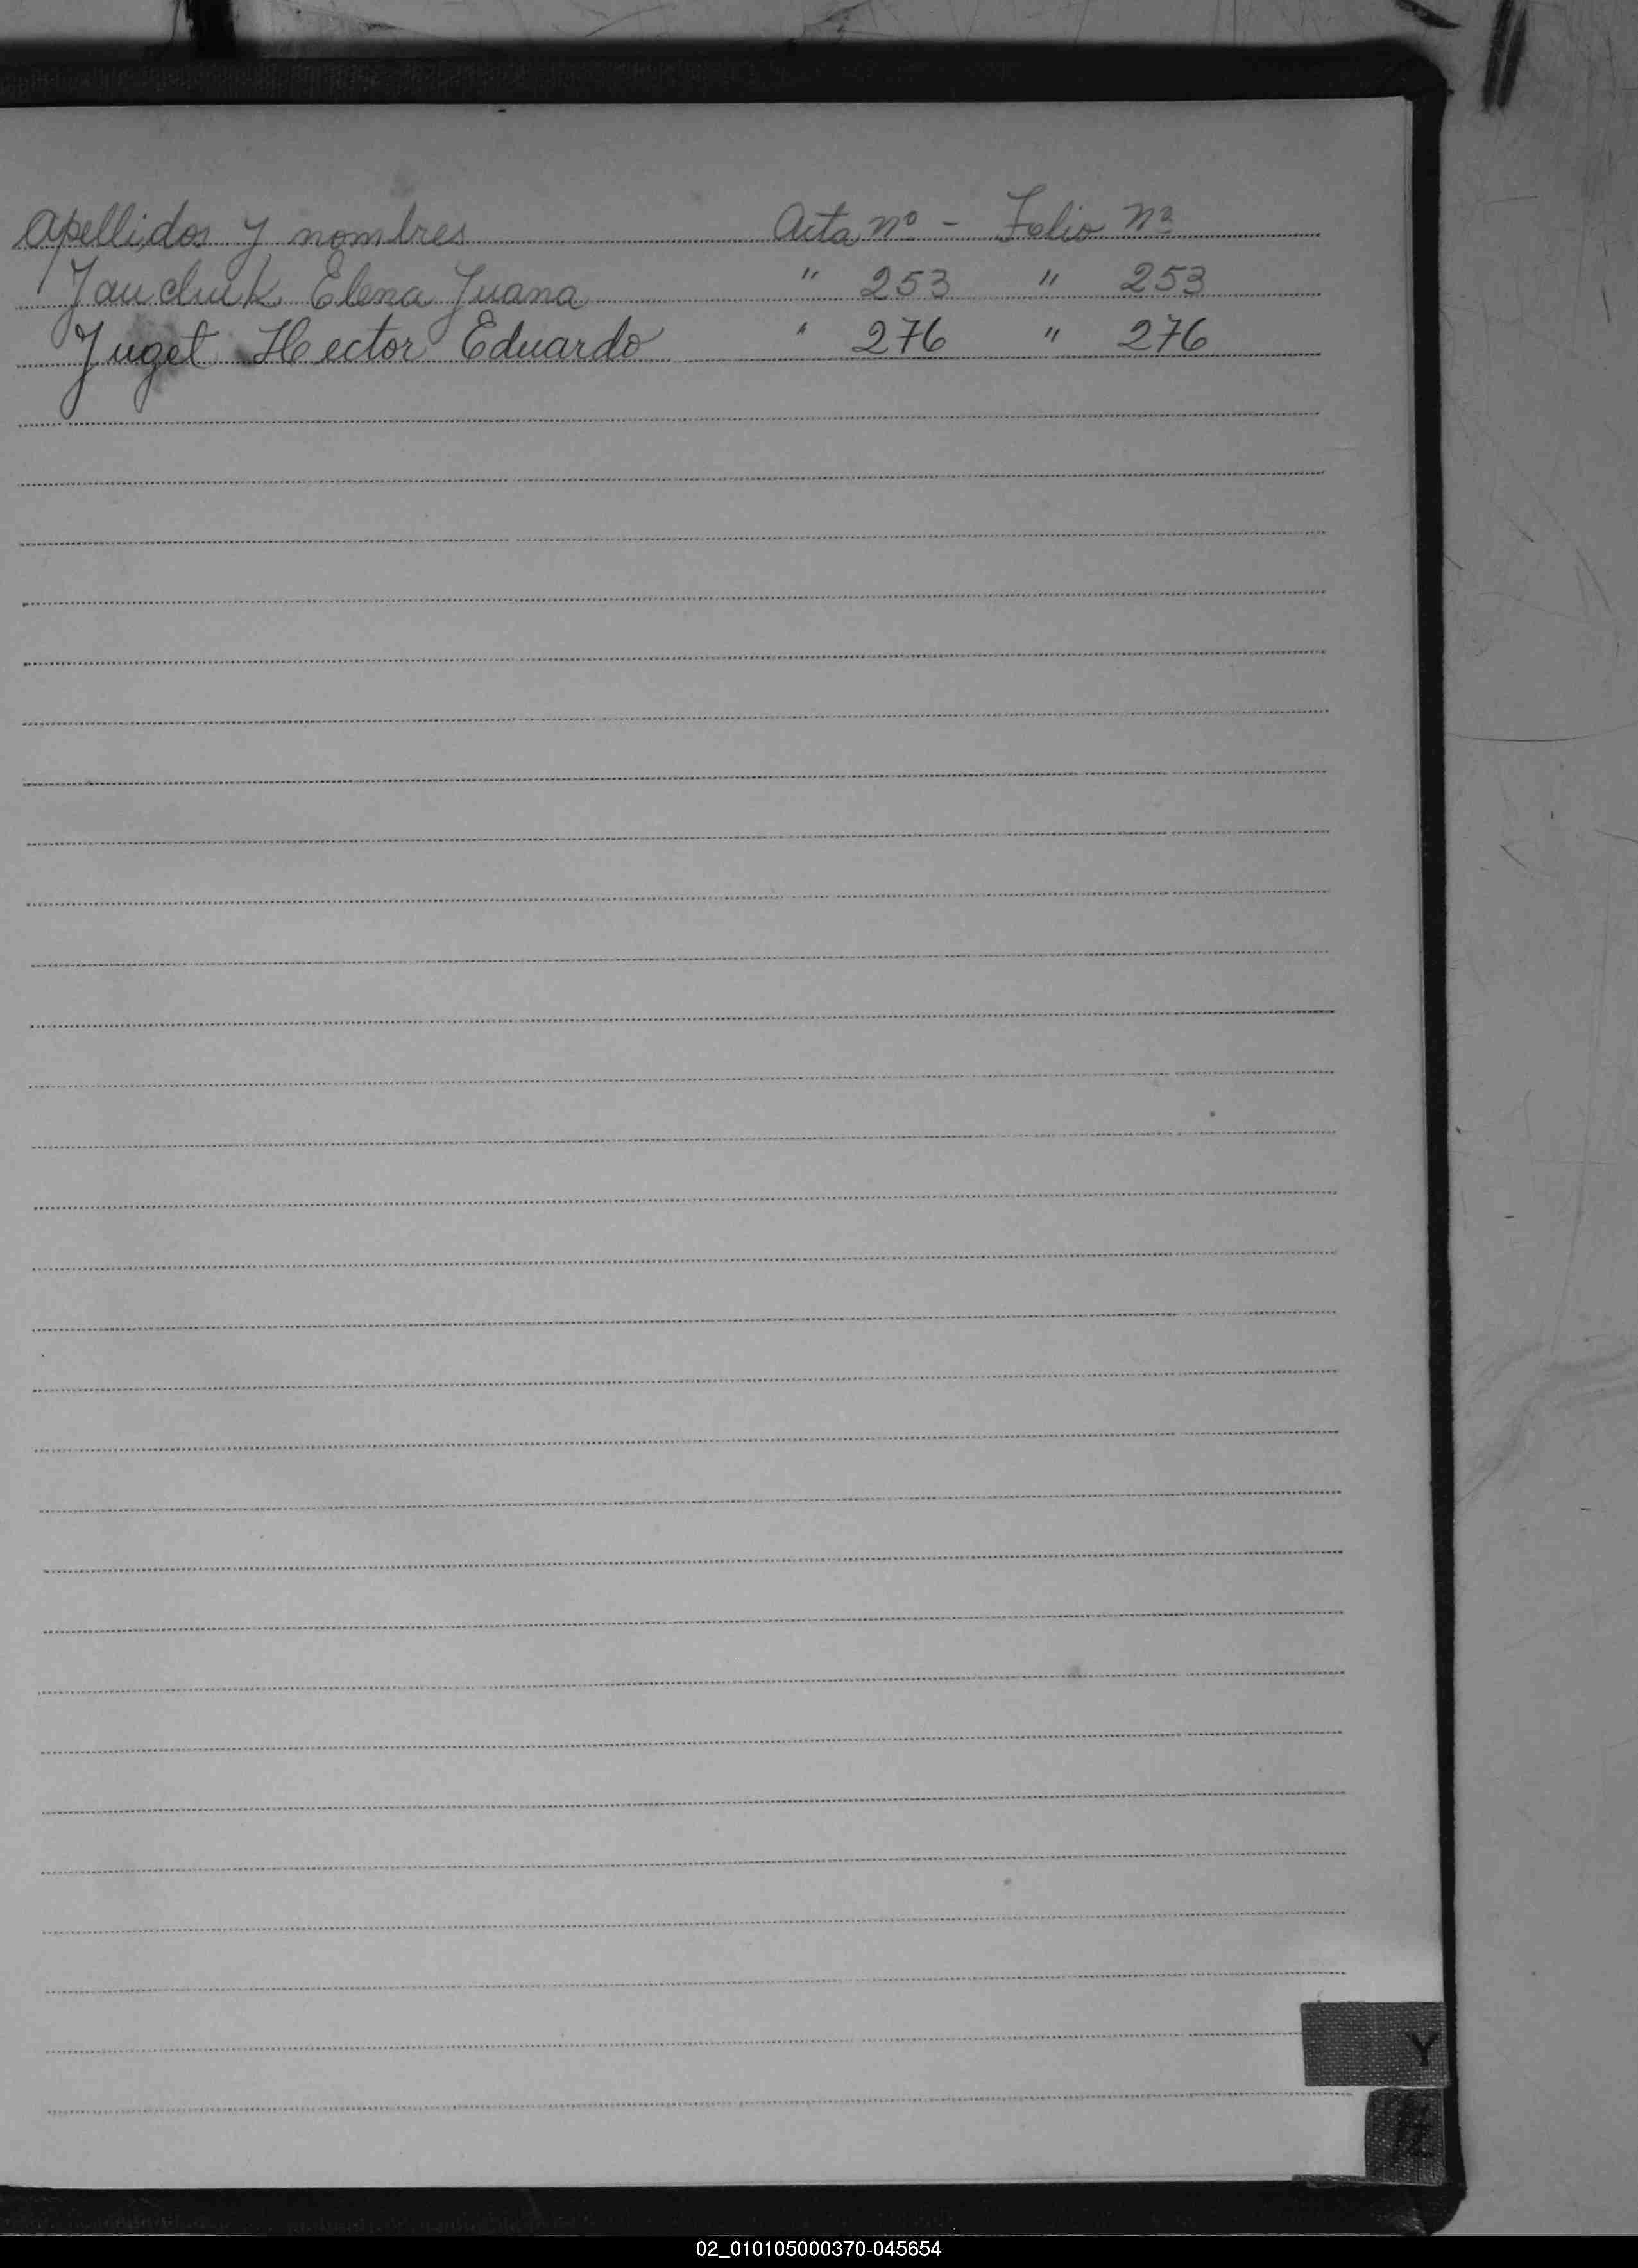 Apellidos y nombres Acta nº - Folio Nº
Yauchuk Elena Juana " 253 " 253
Yuget Hector Eduardo " 276 " 276
Y
Z
02_010105000370-045654